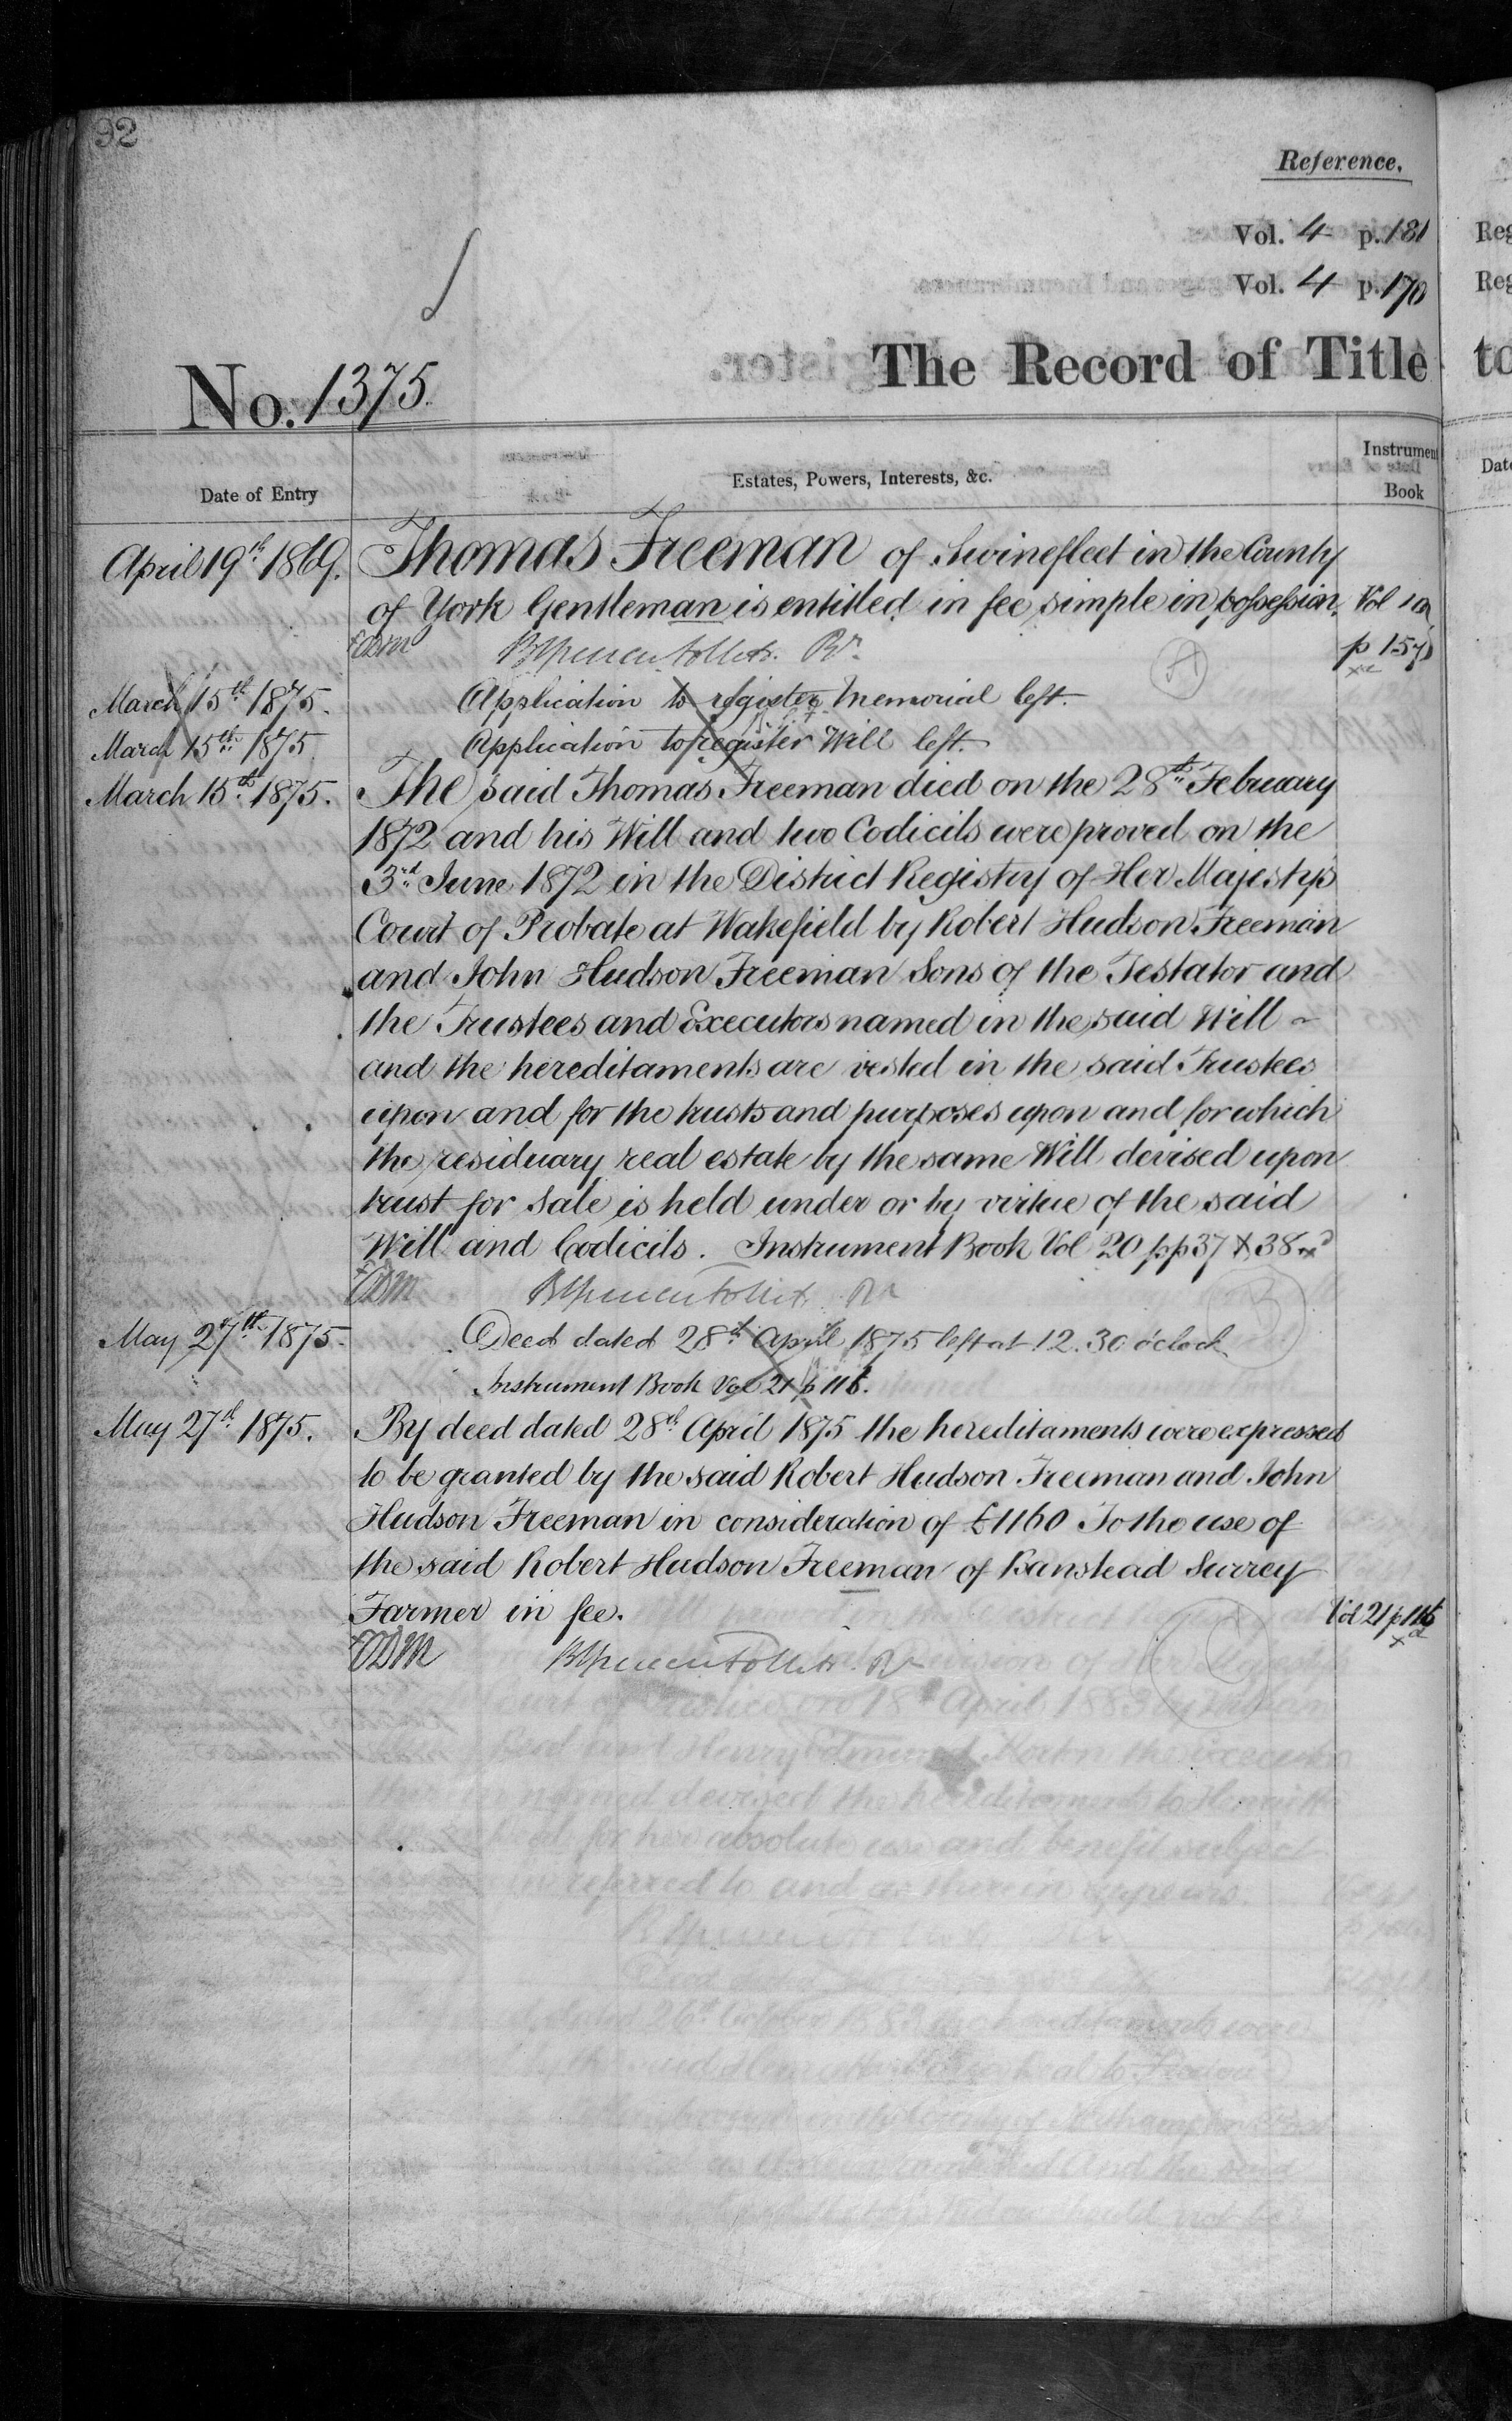 92
Reference.
Vol. 4 p. 181
Vol. 4 p. 170
No. 1375.
The Record of Title
Date of Entry
Estates, Powers, Interests, &c.
Instrument
Book
April 19th 1869. Thomas Freeman of Swinefleet in the County
of York Gentleman is entitled in fee simple in possession. Vol 10
p 157
A
March 15th 1875. Application to register Memorial left.
March 15th 1875 Application to register Will left.
March 15th 1875. The said Thomas Freeman died on the 28th February
1872 and his Will and two Codicils were proved on the
3rd June 1872 in the District Registry of Her Majesty's
Court of Probate at Wakefield by Robert Hudson Freeman
and John Hudson Freeman Sons of the Testator and
the Trustees and Executors named in the said Will
and the hereditaments are vested in the said Trustees
upon and for the trusts and purposes upon and for which
the residuary real estate by the same Will devised upon
trust for Sale is held under or by virtue of the said
Will and Codicils. Instrument Book Vol 20 pp 37 & 38
B
May 27th 1875. Deed dated 28th April 1875 left at 12.30 o'clock
Instrument Book Vol 21 p 116.
May 27th 1875. By deed dated 28th April 1875 the hereditaments were expressed
to be granted by the said Robert Hudson Freeman and John
Hudson Freeman in consideration of £1160 To the use of
the said Robert Hudson Freeman of Banstead Surrey
Farmer in fee. Vol 21 p 116
C